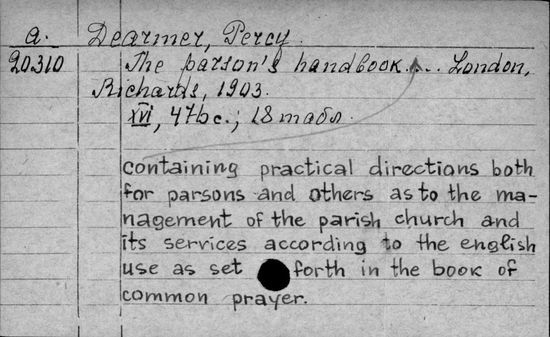 a. Dearmer, Percy.
20310 The parson's handbook.... London,
Richards, 1903.
XVI, 476 c.; 18 табл.
containing practical directions both
for parsons and others as to the ma-
nagement of the parish church and
its services according to the english
use as set forth in the book of
common prayer.